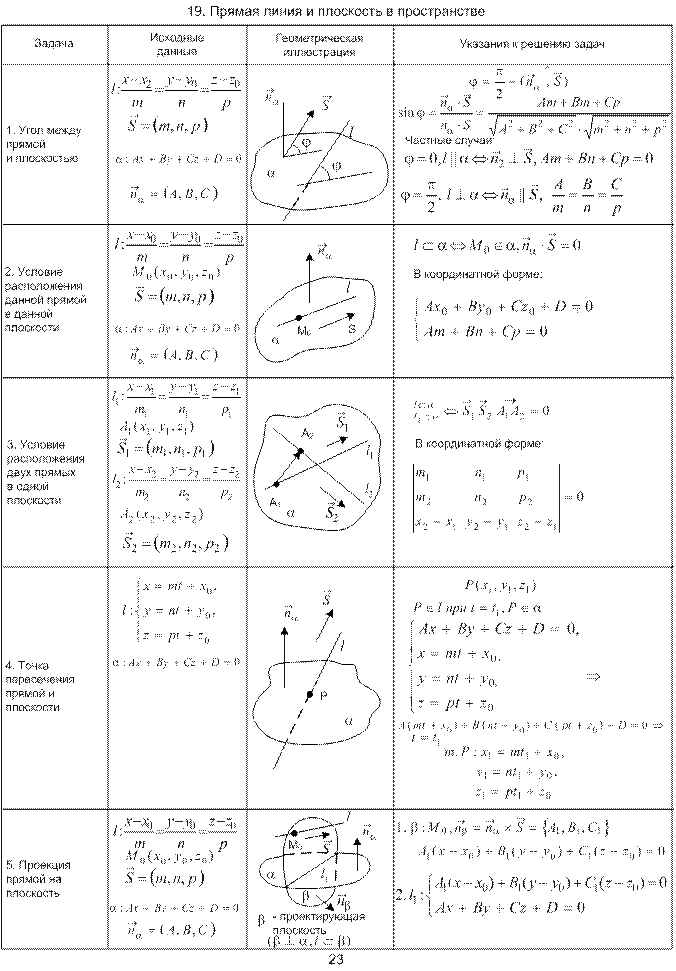 19. Прямая линия и плоскость в пространстве
Задача
Исходные данные
Геометрическая иллюстрация
Указания к решению задач
1. Угол между
прямой
и плоскостью
l: (x−x₂)/m = (y−y₀)/n = (z−z₀)/p
S⃗ = (m, n, p)
α: Ax + By + Cz + D = 0
n⃗α = (A, B, C)
n⃗α S⃗ l φ α φ
φ = π/2 − (n⃗α^, S⃗)
sin φ = (n⃗α · S⃗)/(nα · S) = (Am + Bm + Cp)/(√(A² + B² + C²) · √(m² + n² + p²))
Частные случаи:
φ = 0, l || α ⇔ n⃗₂ ⊥ S⃗, Am + Bn + Cp = 0
φ = π/2, l ⊥ α ⇔ n⃗α || S⃗, A/m = B/n = C/p
2. Условие
расположения
данной прямой
в данной
плоскости
l: (x−x₀)/m = (y−y₀)/n = (z−z₀)/p
M₀(x₀, y₀, z₀)
S⃗ = (m, n, p)
α: Ax + By + Cz + D = 0
n⃗α = (A, B, C)
n⃗α l α M₀ S
l ⊂ α ⇔ M₀ ∈ α, n⃗α · S⃗ = 0
В координатной форме:
{ Ax₀ + By₀ + Cz₀ + D = 0
Am + Bn + Cp = 0
3. Условие
расположения
двух прямых
в одной
плоскости
l₁: (x−x₁)/m₁ = (y−y₁)/n₁ = (z−z₁)/p₁
A₁(x₁, y₁, z₁)
S⃗₁ = (m₁, n₁, p₁)
l₂: (x−x₂)/m₂ = (y−y₂)/n₂ = (z−z₂)/p₂
A₂(x₂, y₂, z₂)
S⃗₂ = (m₂, n₂, p₂)
A₂ S⃗₁ l₁ A₁ l₂ α S⃗₂
⇔ S⃗₁ S⃗₂ A₁A₂ = 0
В координатной форме:
| m₁ n₁ p₁ |
| m₂ n₂ p₂ | = 0
| x₂ − x₁ y₂ − y₁ z₂ − z₁ |
4. Точка
пересечения
прямой и
плоскости
l: { x = mt + x₀,
y = nt + y₀,
z = pt + z₀
α: Ax + By + Cz + D = 0
n⃗α S⃗ l P α
P(x₁, y₁, z₁)
P ∈ l при t = t₁, P ∈ α
{ Ax + By + Cz + D = 0,
x = mt + x₀,
y = nt + y₀, ⇒
z = pt + z₀
A(mt + x₀) + B(nt + y₀) + C(pt + z₀) + D = 0 ⇒
t = t₁
т. P: x₁ = mt₁ + x₀,
y₁ = nt₁ + y₀,
z₁ = pt₁ + z₀
5. Проекция
прямой на
плоскость
l: (x−x₀)/m = (y−y₀)/n = (z−z₀)/p
M₀(x₀, y₀, z₀)
S⃗ = (m, n, p)
α: Ax + By + Cz + D = 0
n⃗α = (A, B, C)
l M₀ S⃗ n⃗α α l₁ β n⃗β
β - проектирующая
плоскость
(β ⊥ α, l ⊂ β)
1. β: M₀, n⃗β = n⃗α × S⃗ = {A₁, B₁, C₁}
A₁(x − x₀) + B₁(y − y₀) + C₁(z − z₀) = 0
2. l₁: { A₁(x − x₀) + B₁(y − y₀) + C₁(z − z₀) = 0
Ax + By + Cz + D = 0
23